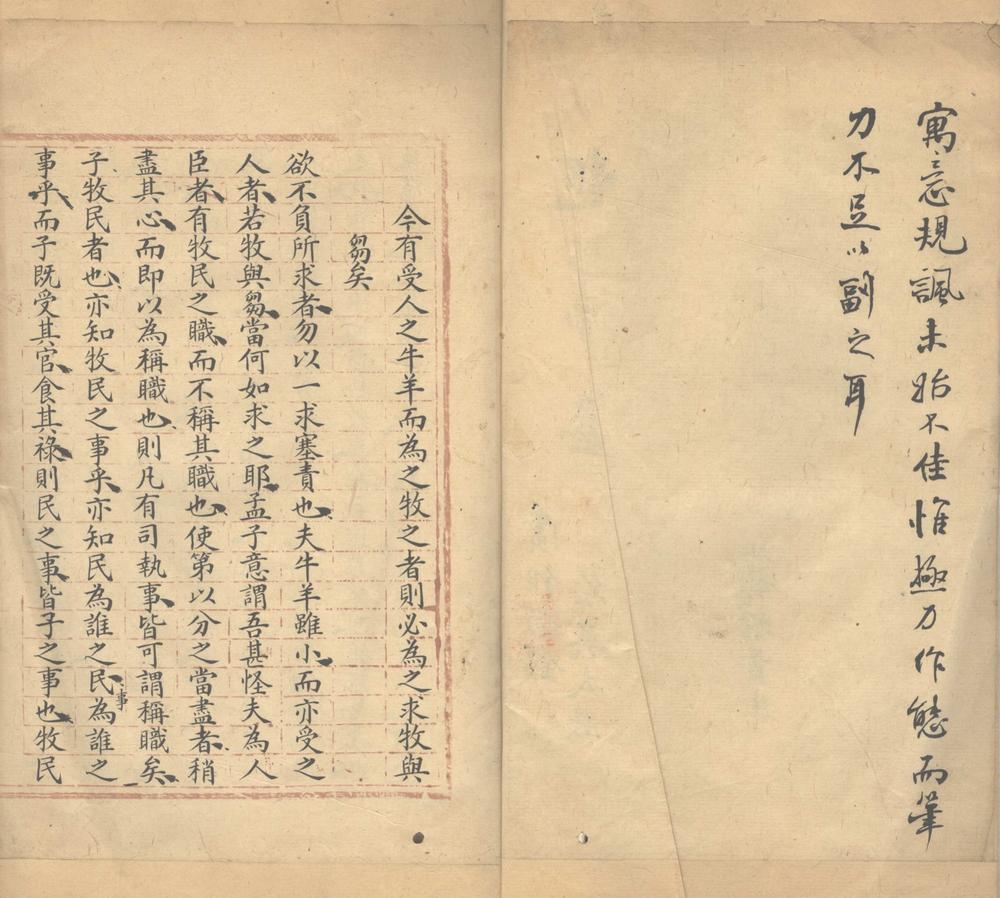 寓意規諷未始不佳惟極力作態而筆
力不足以副之耳
今有受人之牛羊而為之牧之者則必為之求牧與
芻矣
欲不負所求者勿以一求塞責也夫牛羊雖小而亦受之
人者若牧與芻當何如求之耶孟子意謂吾甚怪夫為人
臣者有牧民之職而不稱其職也使第以分之當盡者稍
盡其心而即以為稱職也則凡有司執事皆可謂稱職矣
子牧民者也亦知牧民之事乎亦知民為誰之民事為誰之
事乎而子既受其官食其祿則民之事皆子之事也牧民